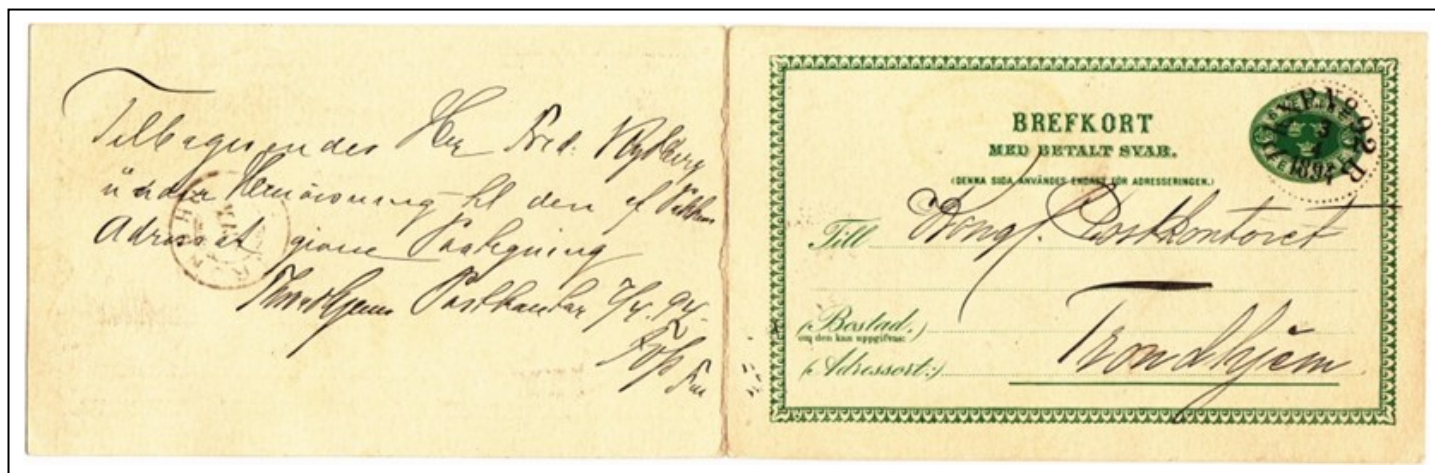 Tilbagesendes Her Fred. Rydberg
under Henvisning til den af
Adressat givne Paategning
Throndhjems Postkontor 7/4. 94.
BREFKORT
MED BETALT SVAR.
(DENNA SIDA ANVÄNDES ENDAST FÖR ADRESSERINGEN.)
PKXP.No 92B
3
4
1894
Till Kongl. Postkontoret
(Bostad.)
om den kan uppgifvas:
(Adressort:) Trondhjem